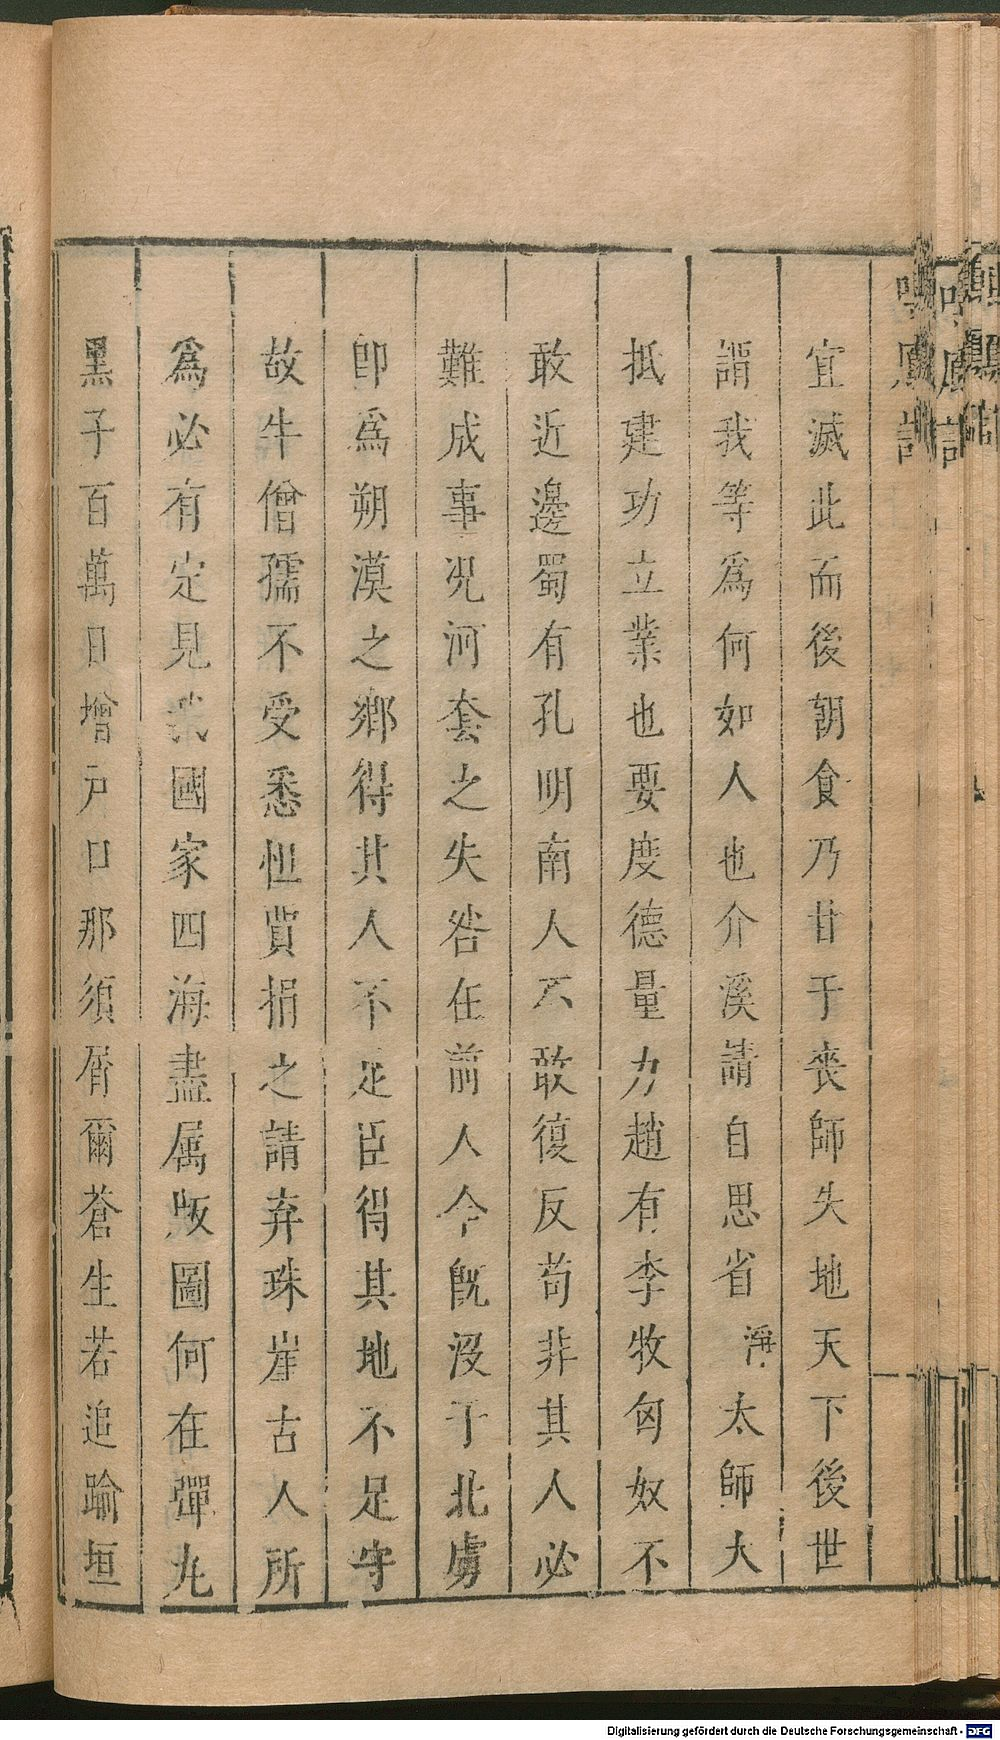 宜滅此而後朝食乃甘于喪師失地天下後世
謂我等爲何如人也介溪請自思省 淨 太師大
抵建功立業也要度德量力趙有李牧匈奴不
敢近邊蜀有孔明南人不敢復反苟非其人必
難成事况河套之失咎在前人今旣没于北虜
卽爲朔漠之鄉得其人不足臣得其地不足守
故牛僧孺不受悉怛賈捐之請弃珠崖古人所
爲必有定見我國家四海盡属版圖何在彈丸
黑子百萬日增戸口那須屑爾蒼生若追踰垣
Digitalisierung gefördert durch die Deutsche Forschungsgemeinschaft - DFG